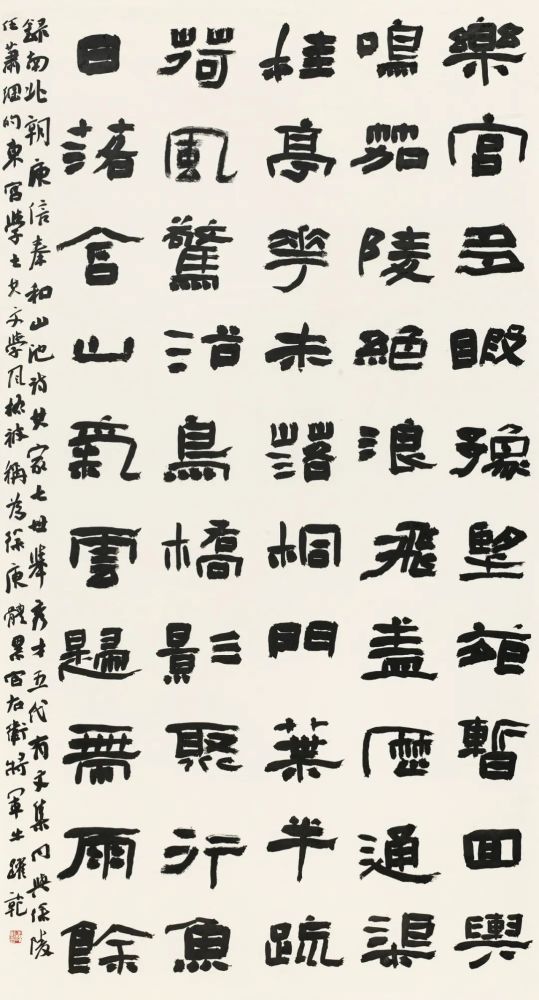 樂官多暇豫望苑暫回輿
鳴笳陵絕浪飛蓋歷通渠
桂亭華未落桐門葉半疏
荷風驚浴鳥橋影聚行魚
日落含山氣雲歸帶雨餘
錄南北朝庾信奉和山池詩其家七世舉秀才五代有文集同與徐陵
任蕭綱的東宮學士其文學風格被稱為徐庾體累官右衛將軍也 躍乾